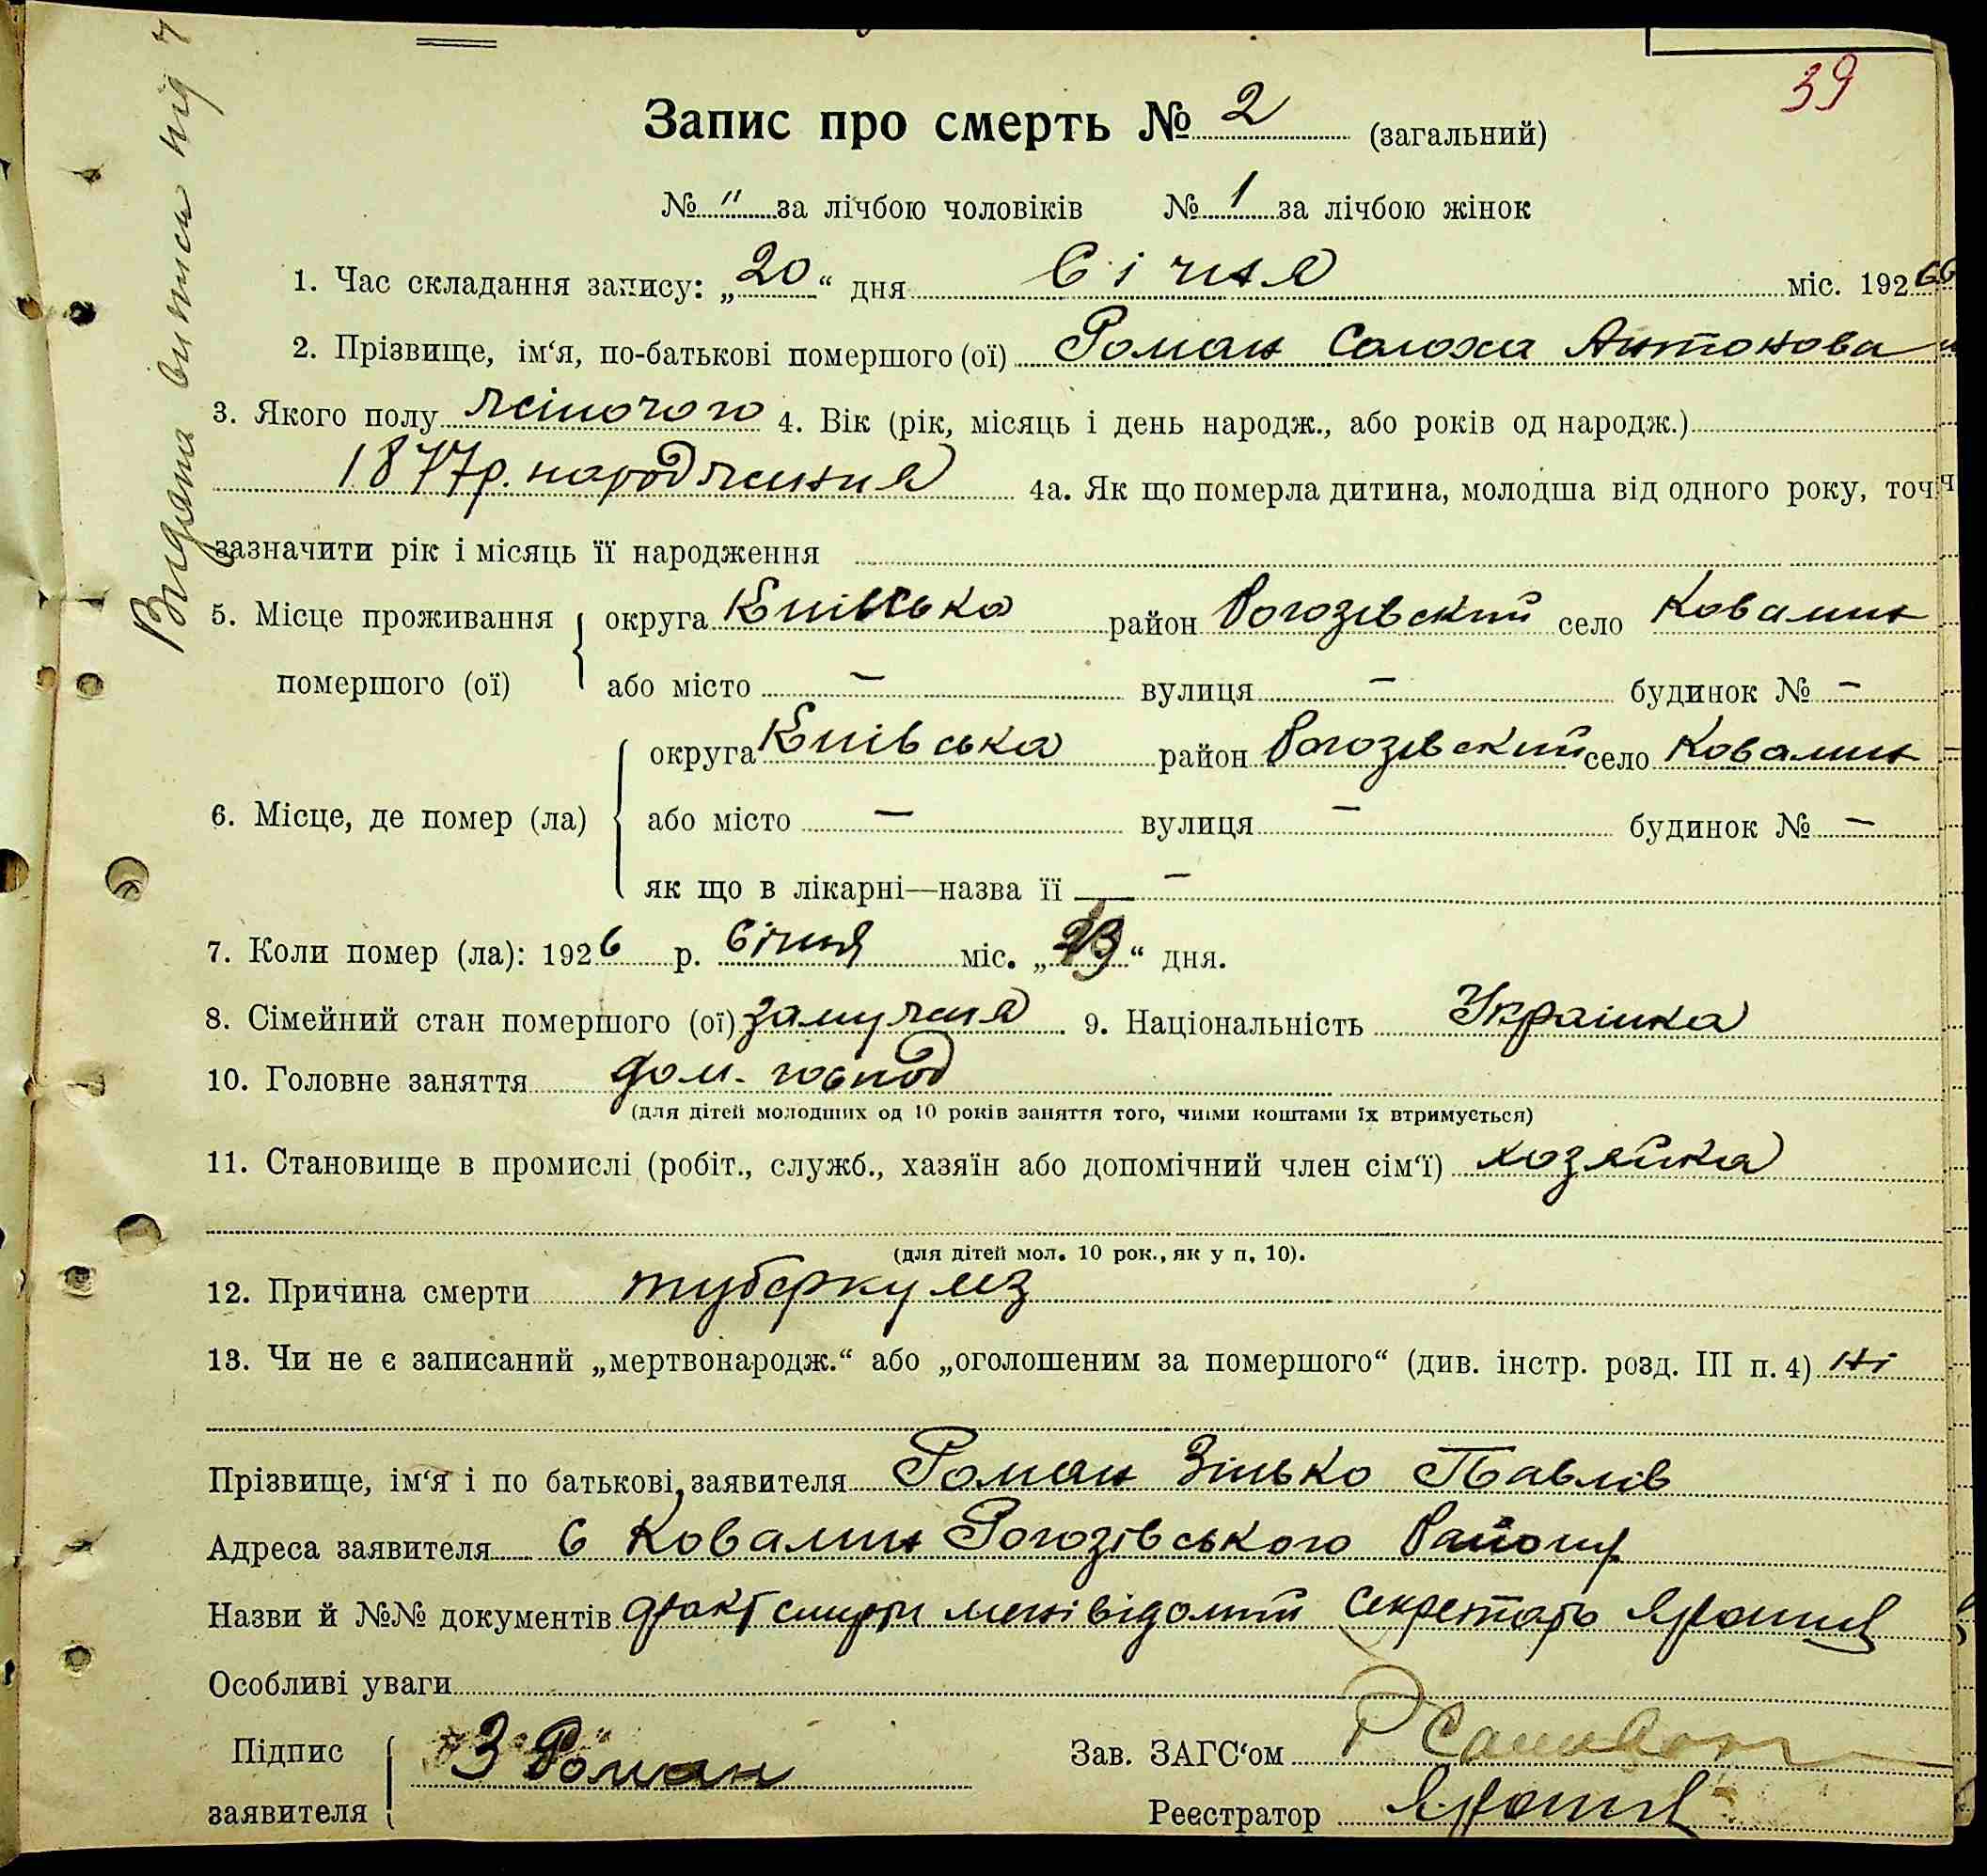 39
Запис про смерть № 2 (загальний)
№ " за лічбою чоловіків № 1 за лічбою жінок
1. Час складання запису: „20“ дня Січня міс. 1926
2. Прізвище, ім‘я, по-батькові помершого (ої) Роман Солоха Антонова
3. Якого полу жіночого 4. Вік (рік, місяць і день народж., або років од народж.)
1877р. народження 4а. Як що померла дитина, молодша від одного року, точ
зазначити рік і місяць її народження
5. Місце проживання округа Київська район Рогозівский село Ковалин
помершого (ої) або місто – вулиця – будинок № –
округа Київська район Рогозівский село Ковалин
6. Місце, де помер (ла) або місто – вулиця – будинок № –
як що в лікарні—назва її –
7. Коли помер (ла): 1926 р. Січня міс. „19“ дня.
8. Сімейний стан помершого (ої) замужня 9. Національність Українка
10. Головне заняття дом. господ
(для дітей молодших од 10 років заняття того, чиїми коштами їх втримується)
11. Становище в промислі (робіт., служб., хазяїн або допомічний член сім‘ї) хозяйка
(для дітей мол. 10 рок., як у п, 10).
12. Причина смерти туберкулз
13. Чи не є записаний „мертвонародж.“ або „оголошеним за помершого“ (див. інстр. розд. III п. 4) Ні
Прізвище, ім‘я і по батькові, заявителя Роман Зінько Павлів
Адреса заявителя С Ковалин Рогозівського Району
Назви й №№ документів факт смерти мені відомий секретарь
Особливі уваги
Підпис З Роман Зав. ЗАГС‘ом
заявителя Реєстратор
Видана виписка під